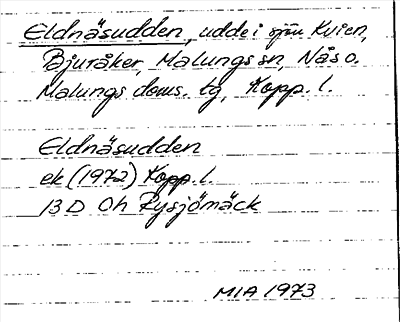 Eldnäsudden, udde i sjön Kvien,
Bjuråker, Malungs sn, Nås o.
Malungs doms. tg, Kopp. l.
Eldnäsudden
ek (1972) Kopp. l.
13 D Oh Rysjömäck
MIA 1973